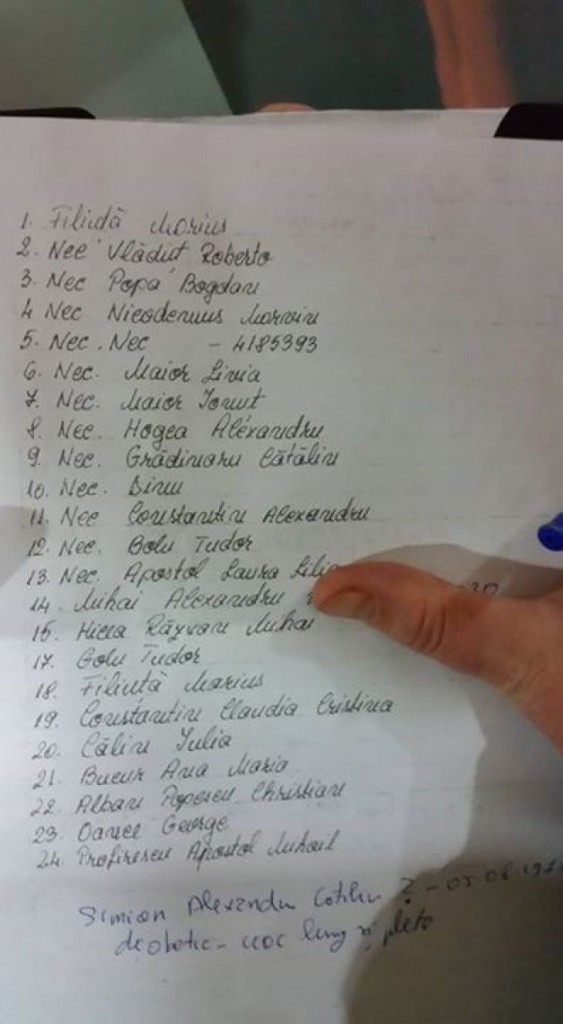 1. Filiuță Marius
2. Nec Vlăduț Roberto
3. Nec Popa Bogdan
4 Nec Nicodemus Marvin
5. Nec. Nec - 4185393
6. Nec. Maior Livia
7. Nec. Maior Ionuț
8. Nec. Hogea Alexandru
9. Nec. Grădinaru Cătălin
10. Nec. Dinu
11. Nec Constantin Alexandru
12. Nec. Golu Tudor
13. Nec. Apostol Laura Lilia
14. Mihai Alexandru
15. Răzvan Mihai
17. Golu Tudor
18. Filiuță Marius
19. Constantin Claudia Cristina
20. Călin Iulia
21. Bucur Ana Maria
22. Alban Popescu Christian
23. George
24. Profirescu Apostol Mihail
Simion Alexandru ? - 05.08.197
- cioc lung și plete